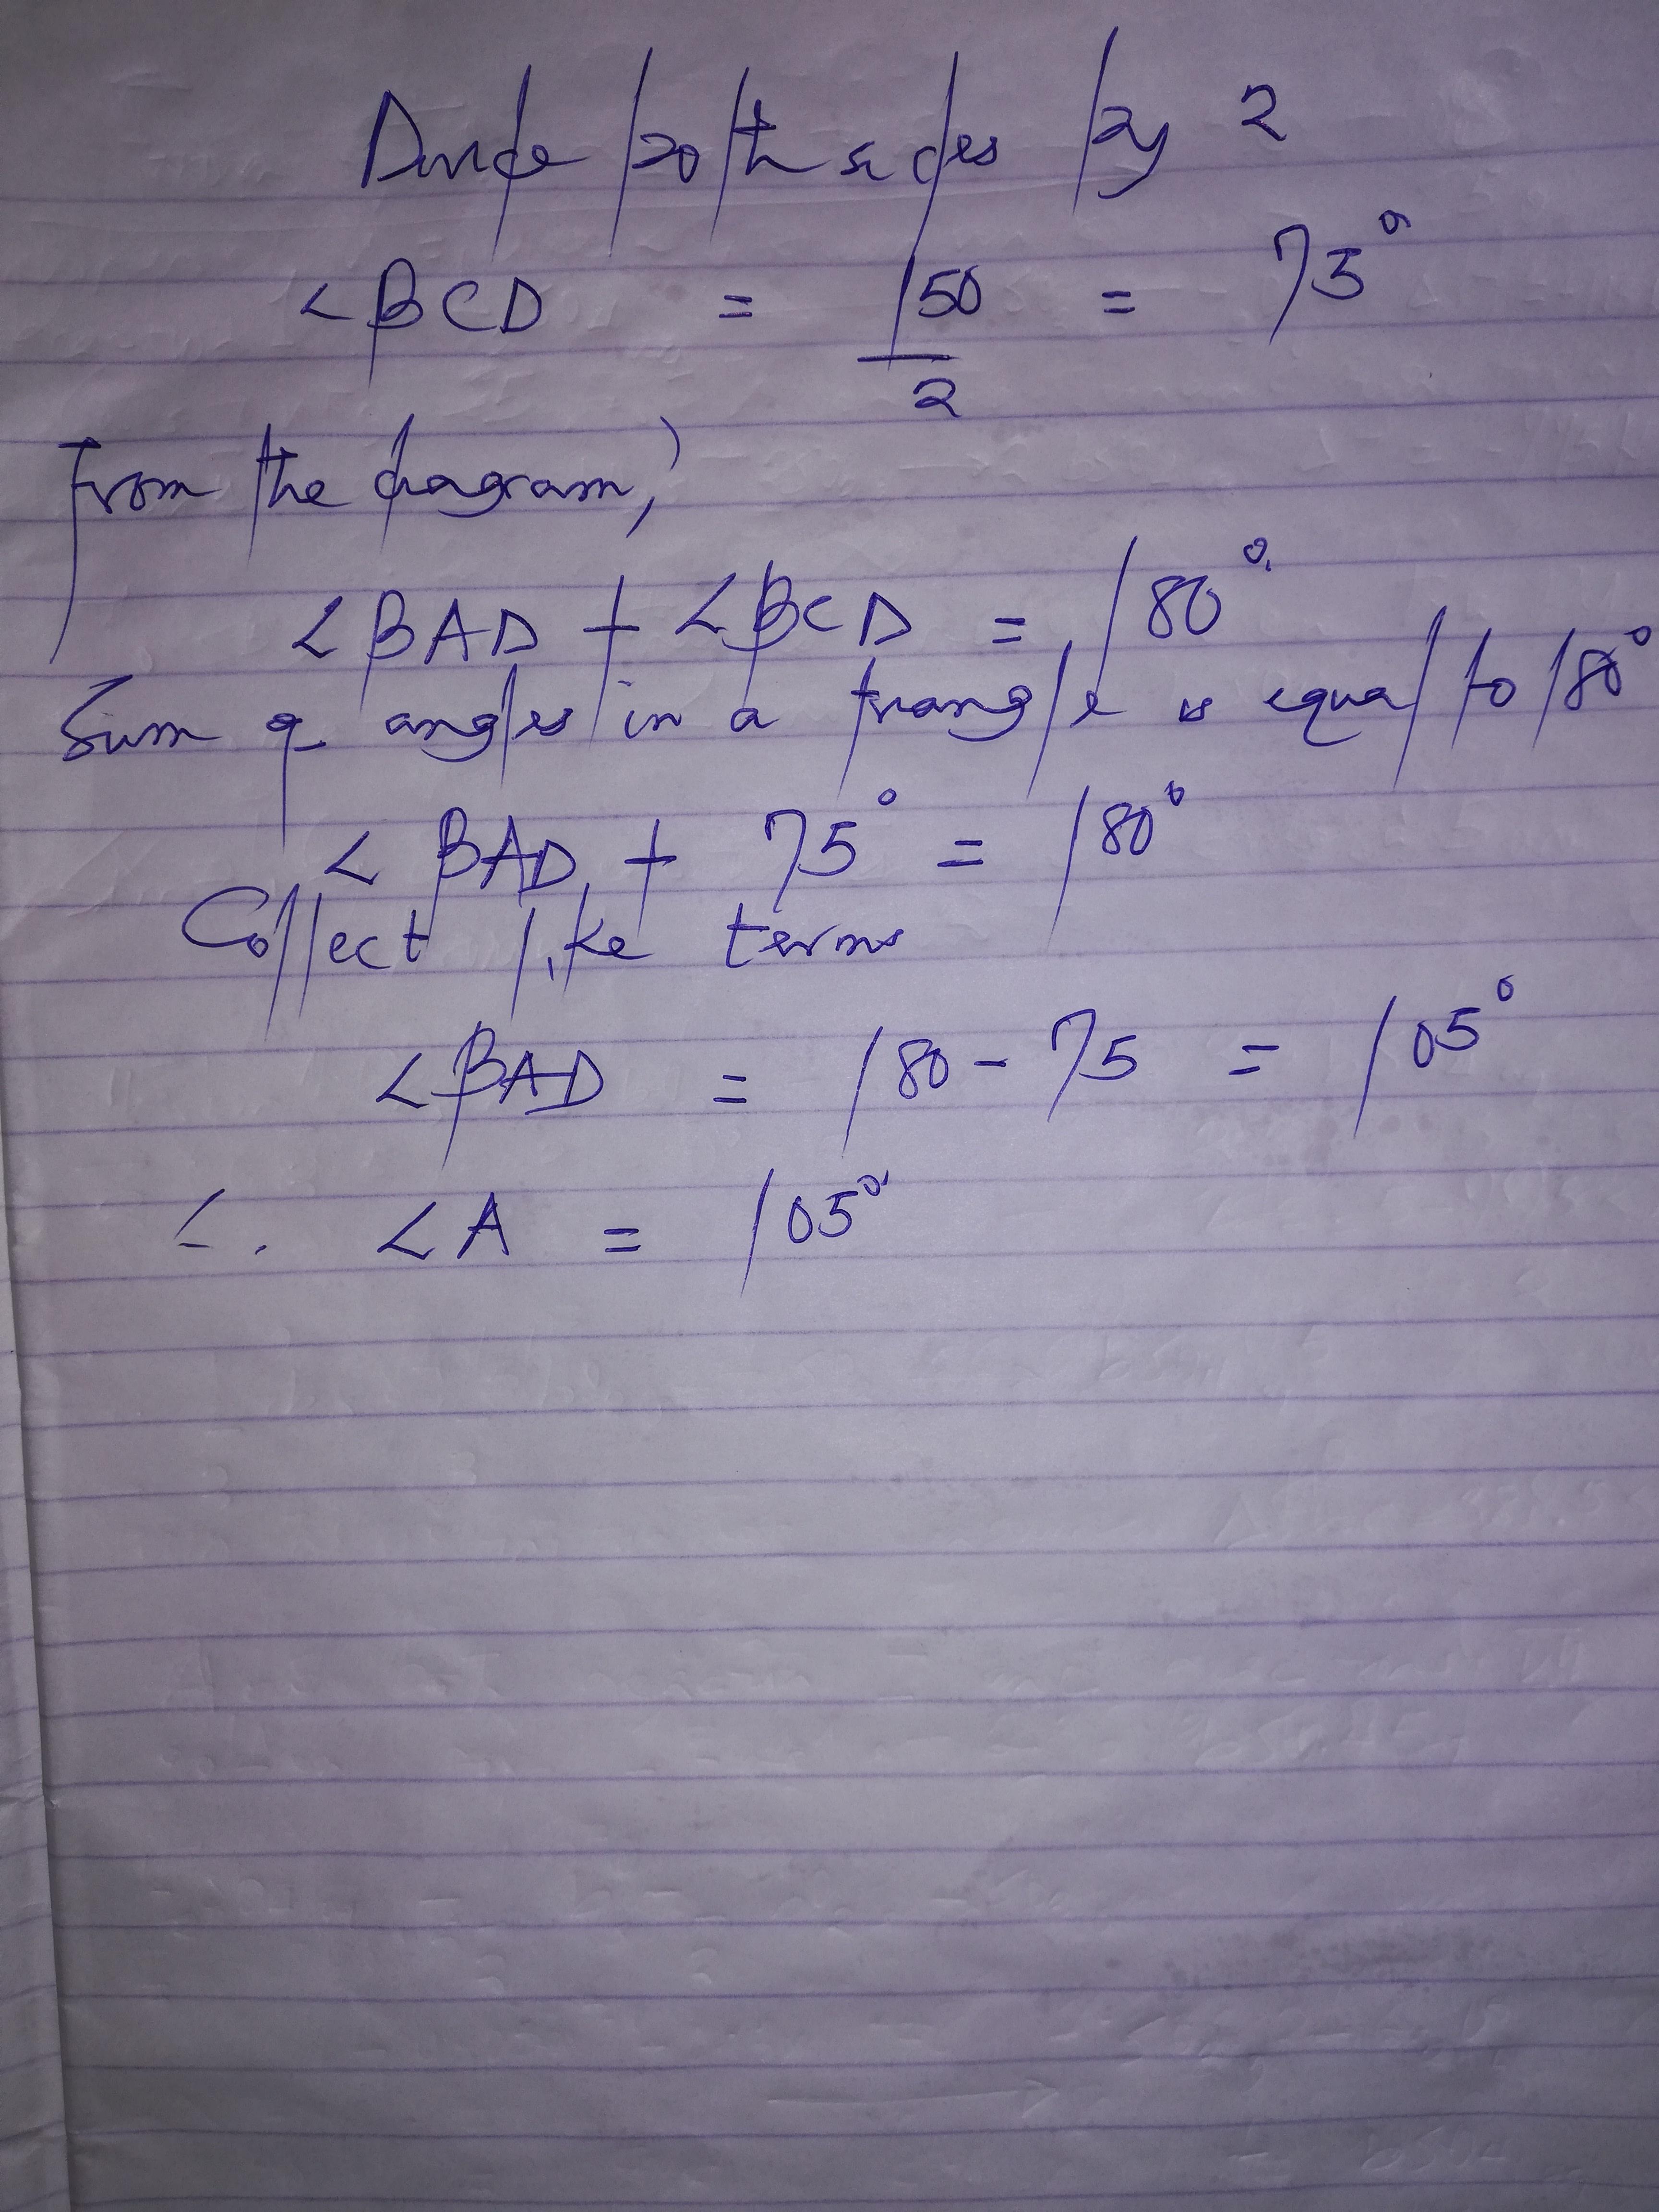 Divide both sides by 2
<BCD = 150/2 = 75°
From the diagram,
<BAD + <BCD = 180°
Sum of angles in a triangle is equal to 180°
< BAD + 75° = 180°
Collect like terms
<BAD = 180 - 75 = 105°
∴ <A = 105°